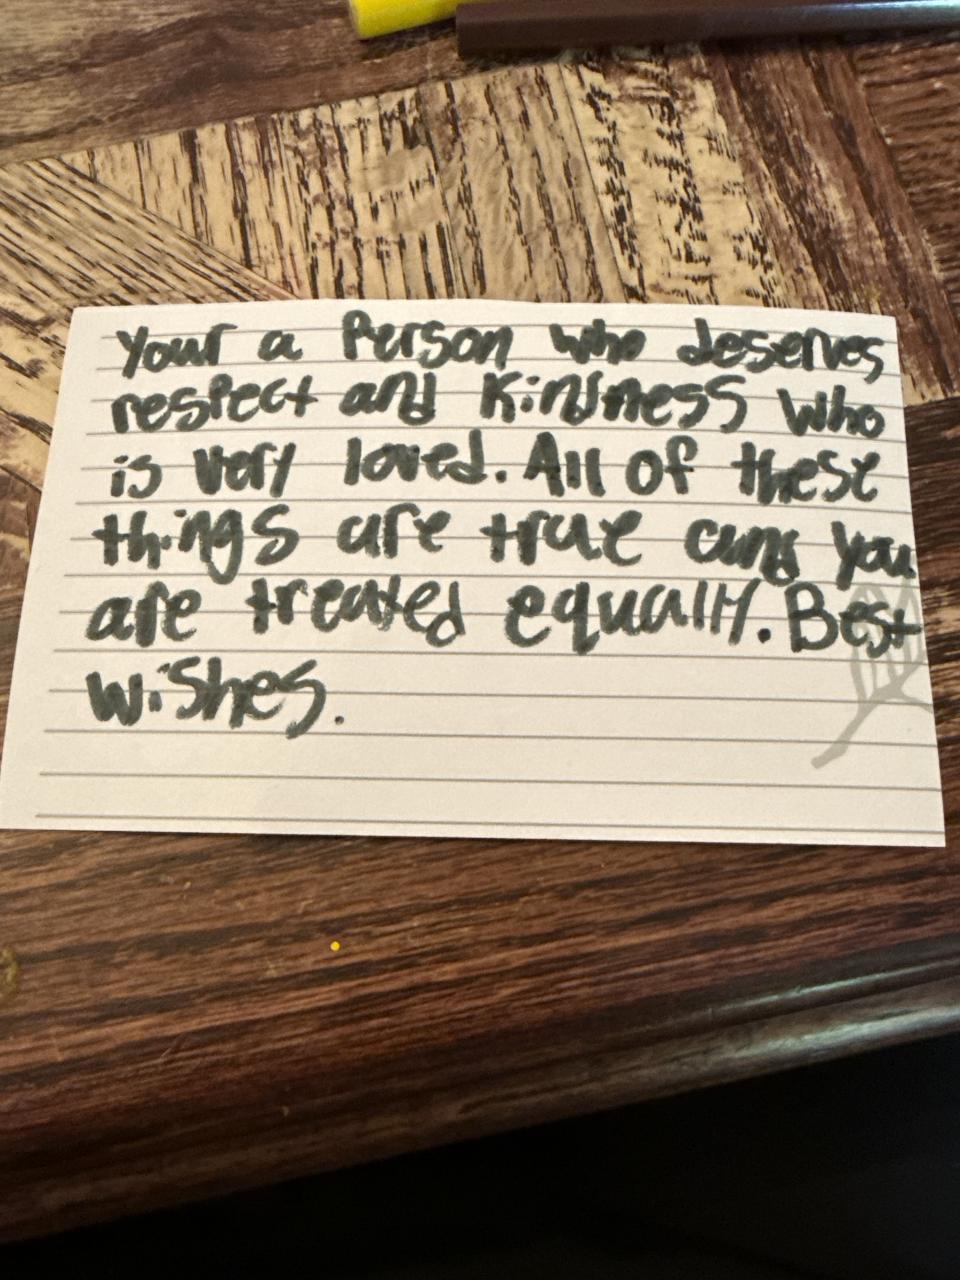 Your a Person who deserves
respect and Kindness who
is very loved. All of these
things are true and you
are treated equally. Best
wishes.